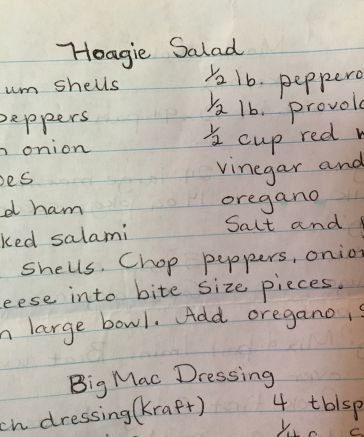 Hoagie Salad
um shells ½ lb. peppero
peppers ½ lb. provolo
n onion ½ cup red w
oes vinegar and
d ham oregano
ked salami Salt and p
shells. Chop peppers, onion
eese into bite size pieces.
n large bowl. Add oregano, s
Big Mac Dressing
ch dressing (Kraft) 4 tblsp
¼ c